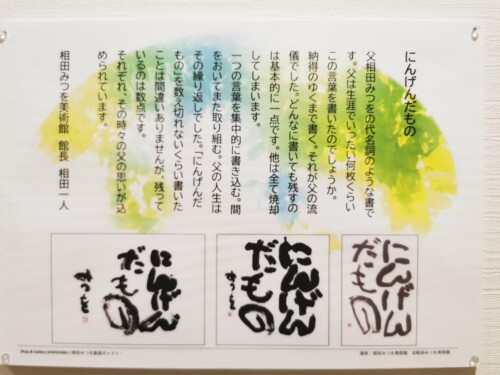 にんげんだもの
父相田みつをの代名詞のような書で
す。父は生涯でいったい何枚くらい
この言葉を書いたのでしょうか。
納得のゆくまで書く。それが父の流
儀でした。どんなに書いても残すの
は基本的に一点です。他は全て焼却
してしまいます。
一つの言葉を集中的に書き込む。間
をおいてまた取り組む。父の人生は
その繰り返しでした。「にんげんだ
もの」を数え切れないくらい書いた
ことは間違いありませんが、残って
いるのは数点です。
それぞれ、その時々の父の思いが込
められています。
相田みつを美術館 館長 相田一人
にんげん
だもの
にんげん
だもの
みつを
にんげん
だもの
みつを